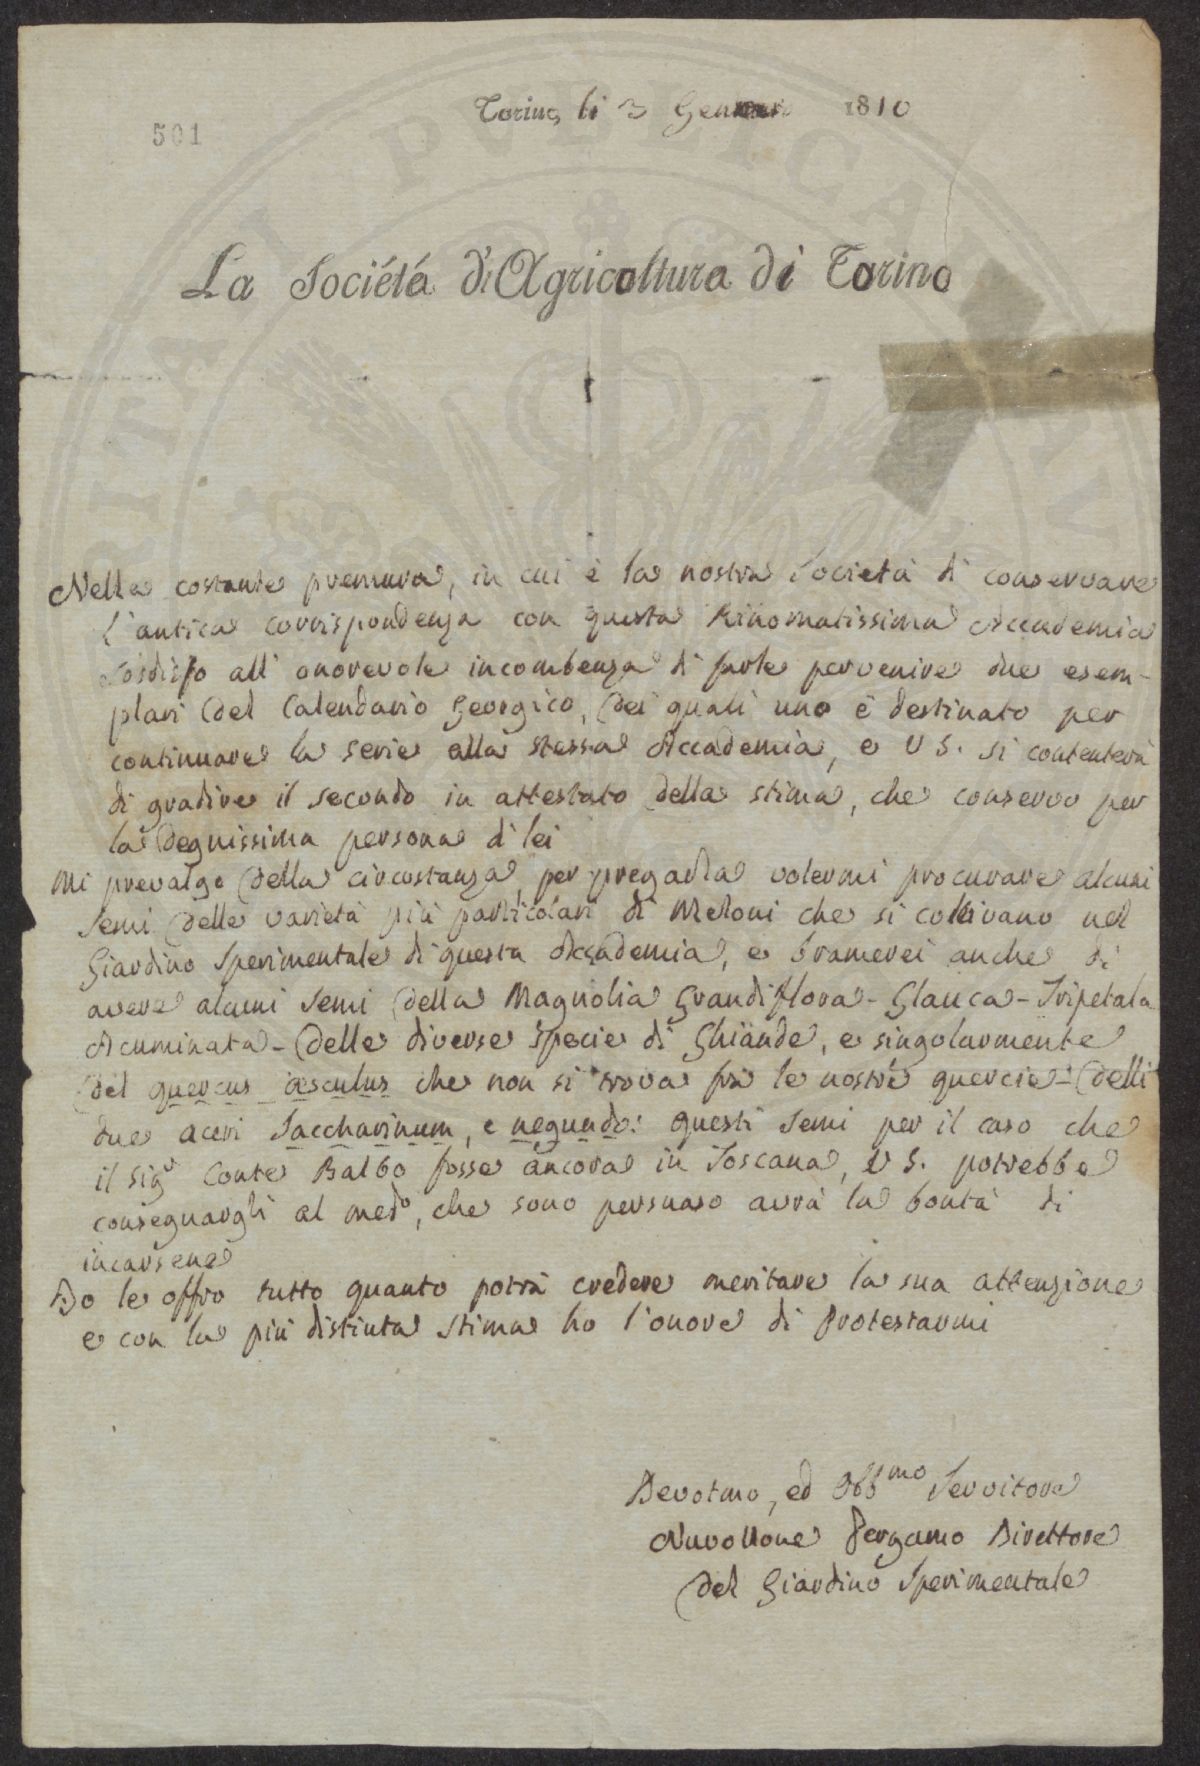 Torino, li 3 Gennaro 1810
501
La Sociétá d'Agricoltura di Torino
Nella costante premura, in cui è la nostra Società di conservare
l'antica corrispondenza con questa Rinomatissima Accademia
Sodisfo all' onorevole incombenza di farle pervenire due esem-
plari del Calendario Georgico, dei quali uno è destinato per
continuare la serie alla stessa Accademia, e V S. si contenterà
di gradire il secondo in attestato della stima, che conservo per
la degnissima persona di lei
Mi prevalgo della circostanza per pregarla volermi procurare alcuni
semi delle varietà più particolari di Meloni che si coltivano nel
Giardino Sperimentale di questa Accademia, e bramerei anche di
avere alcuni semi della Magnolia Grandiflora - Glauca - Tripetala
Acuminata - delle diverse specie di Ghiande, e singolarmente
del quercus æsculus che non si trova fra le nostre quercie - delli
due aceri Saccharinum, e negundo: questi semi per il caso che
il sigr Conte Balbo fosse ancora in Toscana, V S. potrebbe
consegnargli al medo, che sono persuaso avrà la bontà di
incarsene
Io le offro tutto quanto potrà credere meritare la sua attenzione
e con la più distinta stima ho l'onore di Protestarmi
Devotmo, ed Obbmo Servitore
Nuvollone Pergamo Direttore
del Giardino Sperimentale